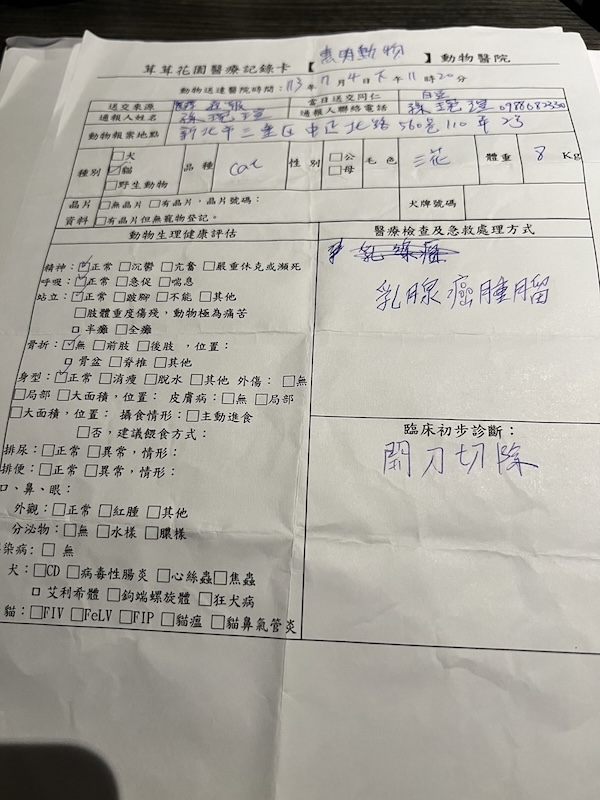 茸茸花園醫療記錄卡【惠明動物】動物醫院
動物送達醫院時間：113年11月4日下午11時20分
送交來源 當日送交同仁
通報人姓名 孫瑗瑄 通報人聯絡電話
動物報案地點 新北市三重區中正北路560巷110弄23
種別 □犬 ☑貓 □野生動物 品種 cat 性別 □公 □母 毛色 三花 體重 8 Kg
晶片資料 □無晶片 □有晶片，晶片號碼： □有晶片但無寵物登記。 犬牌號碼
動物生理健康評估 醫療檢查及急救處理方式
精神：☑正常 □沉鬱 □亢奮 □嚴重休克或瀕死
呼吸：☑正常 □急促 □喘息
站立：☑正常 □跛腳 □不能 □其他
□肢體重度傷殘，動物極為痛苦
□半癱 □全癱
骨折：☑無 □前肢 □後肢，位置：
□骨盆 □脊椎 □其他
身型：☑正常 □消瘦 □脫水 □其他 外傷：□無
□局部 □大面積，位置： 皮膚病：□無 □局部
□大面積，位置： 攝食情形：□主動進食
□否，建議餵食方式：
排尿：□正常 □異常，情形：
排便：□正常 □異常，情形：
口、鼻、眼：
外觀：□正常 □紅腫 □其他
分泌物：□無 □水樣 □膿樣
染病：□ 無
犬：□CD □病毒性腸炎 □心絲蟲 □焦蟲
□艾利希體 □鉤端螺旋體 □狂犬病
貓：□FIV □FeLV □FIP □貓瘟 □貓鼻氣管炎
乳腺癌腫瘤
臨床初步診斷：
開刀切除